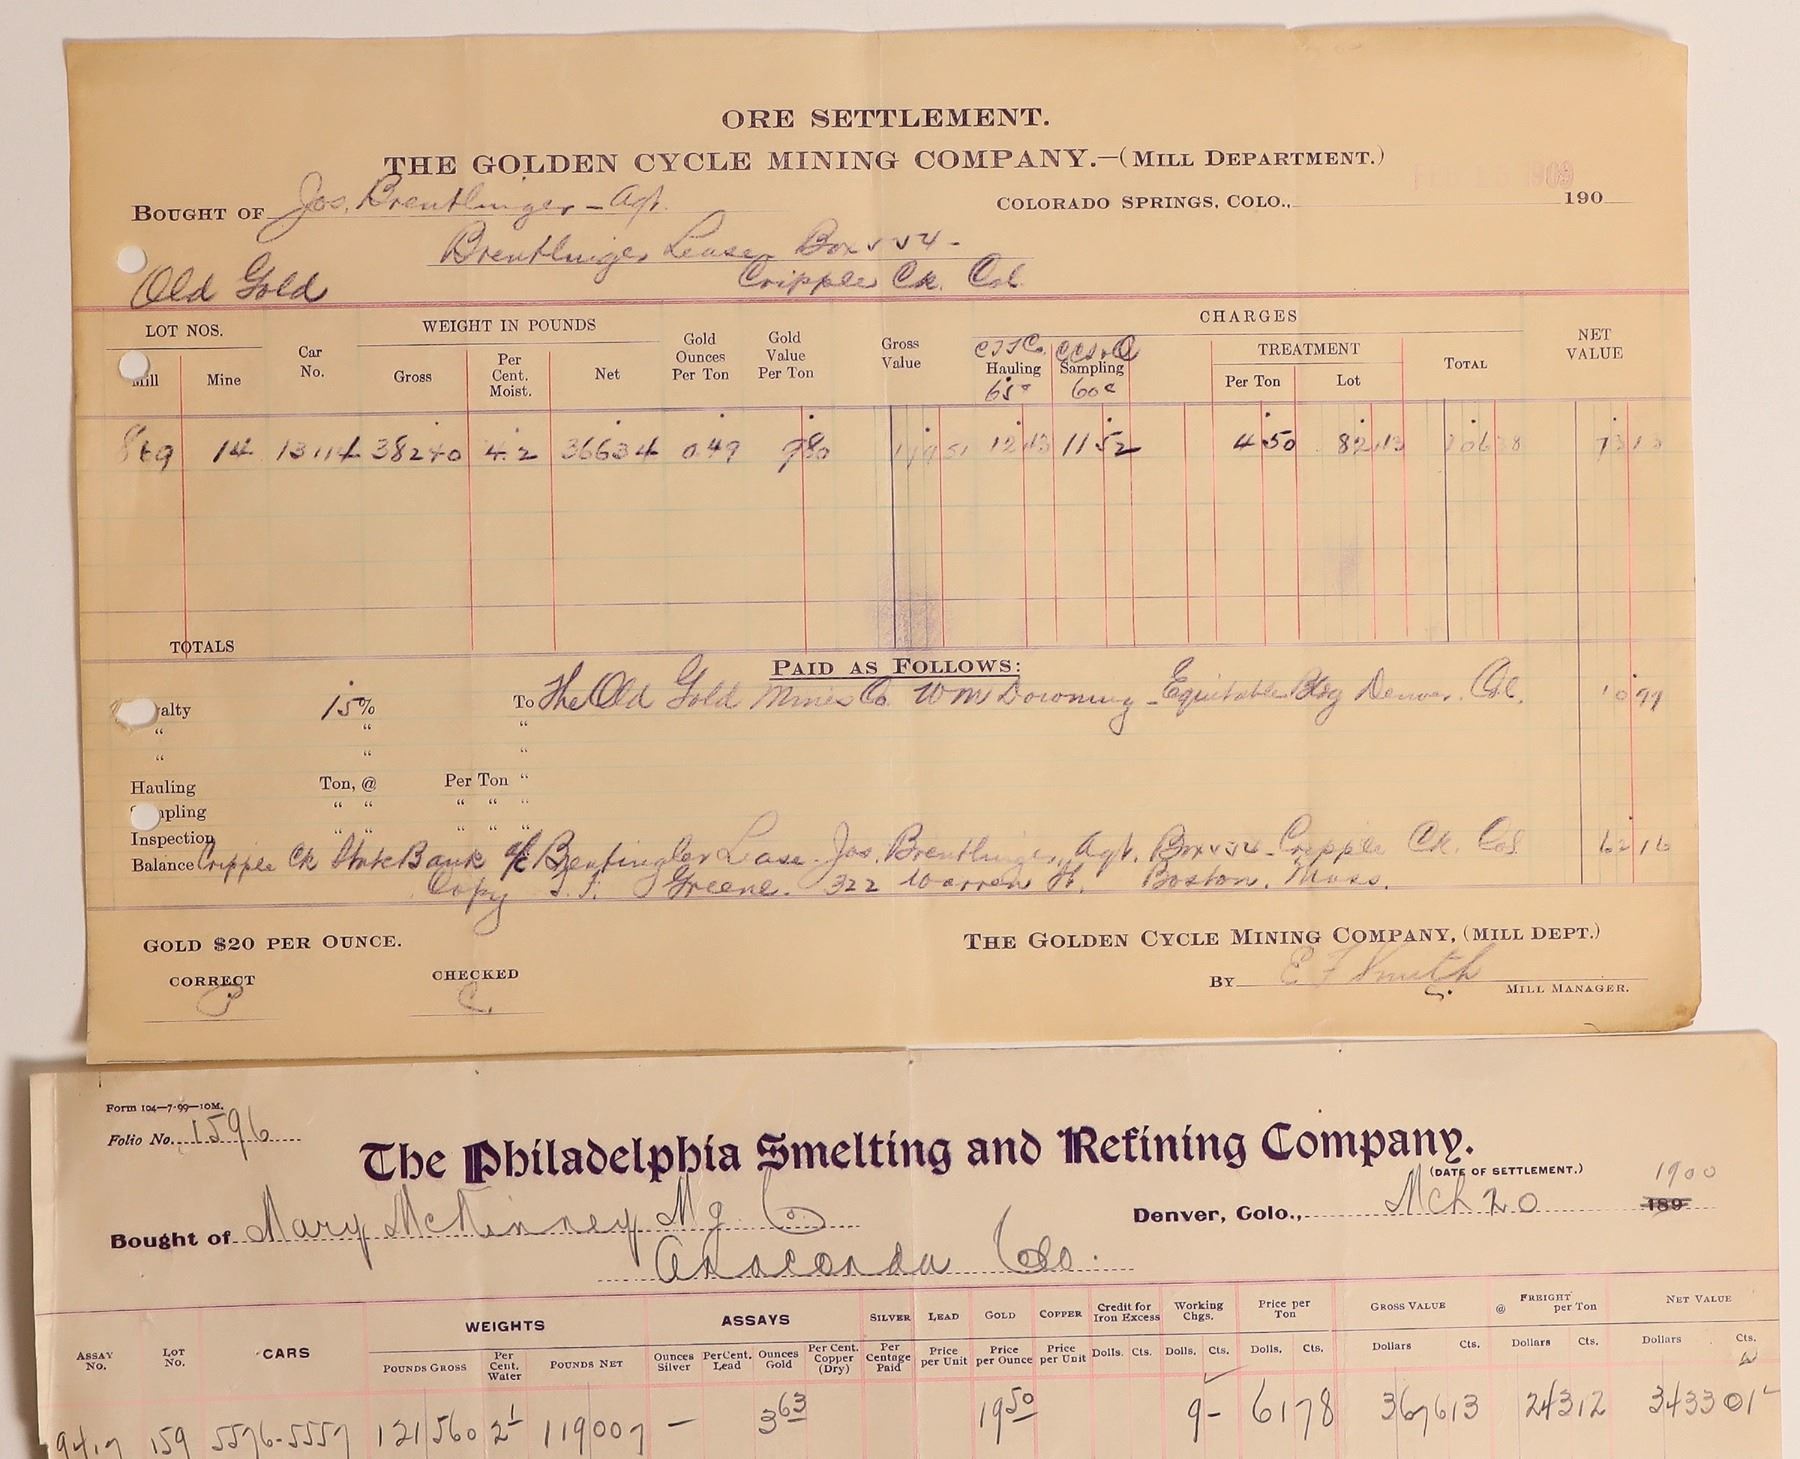 ORE SETTLEMENT.
THE GOLDEN CYCLE MINING COMPANY.—(MILL DEPARTMENT.)
1909
BOUGHT OF Jos. Brentlinger - Agt.
COLORADO SPRINGS, COLO., 190
Brentlinger Lease Box
Old Gold
Cripple Ck. Col.
LOT NOS. Car No. WEIGHT IN POUNDS Gold Ounces Per Ton Gold Value Per Ton Gross Value CHARGES NET VALUE
Mill Mine Gross Per Cent. Moist. Net Hauling 65c Sampling 60c TREATMENT Per Ton Lot TOTAL
869 14 13114 38240 4.2 36634 0.49 9 80 179 51 12 13 11 52 4 50 82 13 106 38 73 13
TOTALS
PAID AS FOLLOWS:
alty 15% To The Old Gold Mines Co. Wm Downing - Equitable Bldg Denver. Col. 10 97
“ “ “
“ “ “
Hauling Ton, @ Per Ton “
mpling “ “ “ “ “
Inspection “ “ “ “ “
Balance Cripple Ck State Bank a/c Lease - Jos. Brentlinger, Agt. Box - Cripple Ck. Col 62 16
Copy Greene. 322 Warren St. Boston, Mass.
GOLD $20 PER OUNCE.
THE GOLDEN CYCLE MINING COMPANY, (MILL DEPT.)
CORRECT CHECKED
BY E F Smith
MILL MANAGER.
Form 104—7-99—10M.
Folio No. 1596
The Philadelphia Smelting and Refining Company.
(DATE OF SETTLEMENT.)
Bought of Mary McKinney Mg Co
Denver, Colo., Mch 20 189 1900
Anaconda Colo.
ASSAY No. LOT No. CARS WEIGHTS ASSAYS SILVER LEAD GOLD COPPER Credit for Iron Excess Working Chgs. Price per Ton GROSS VALUE FREIGHT @ per Ton NET VALUE
POUNDS GROSS Per Cent. Water POUNDS NET Ounces Silver PerCent. Lead Ounces Gold Per Cent. Copper (Dry) Per Centage Paid Price per Unit Price per Ounce Price per Unit Dolls. Cts. Dolls. Cts. Dolls. Cts. Dollars Cts. Dollars Cts. Dollars Cts.
159 5576-5557 121 560 2 1 119 007 — 3 63 19 50 9 - 61 78 3676 13 243 12 3433 01